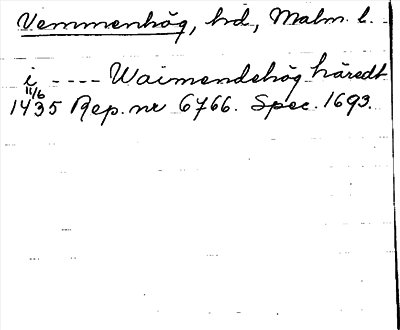 Vemmenhög, hd, Malm. l.
i ---- Waimendehög häredt
11/6
1435 Rep. nr 6766. Spec. 1693.